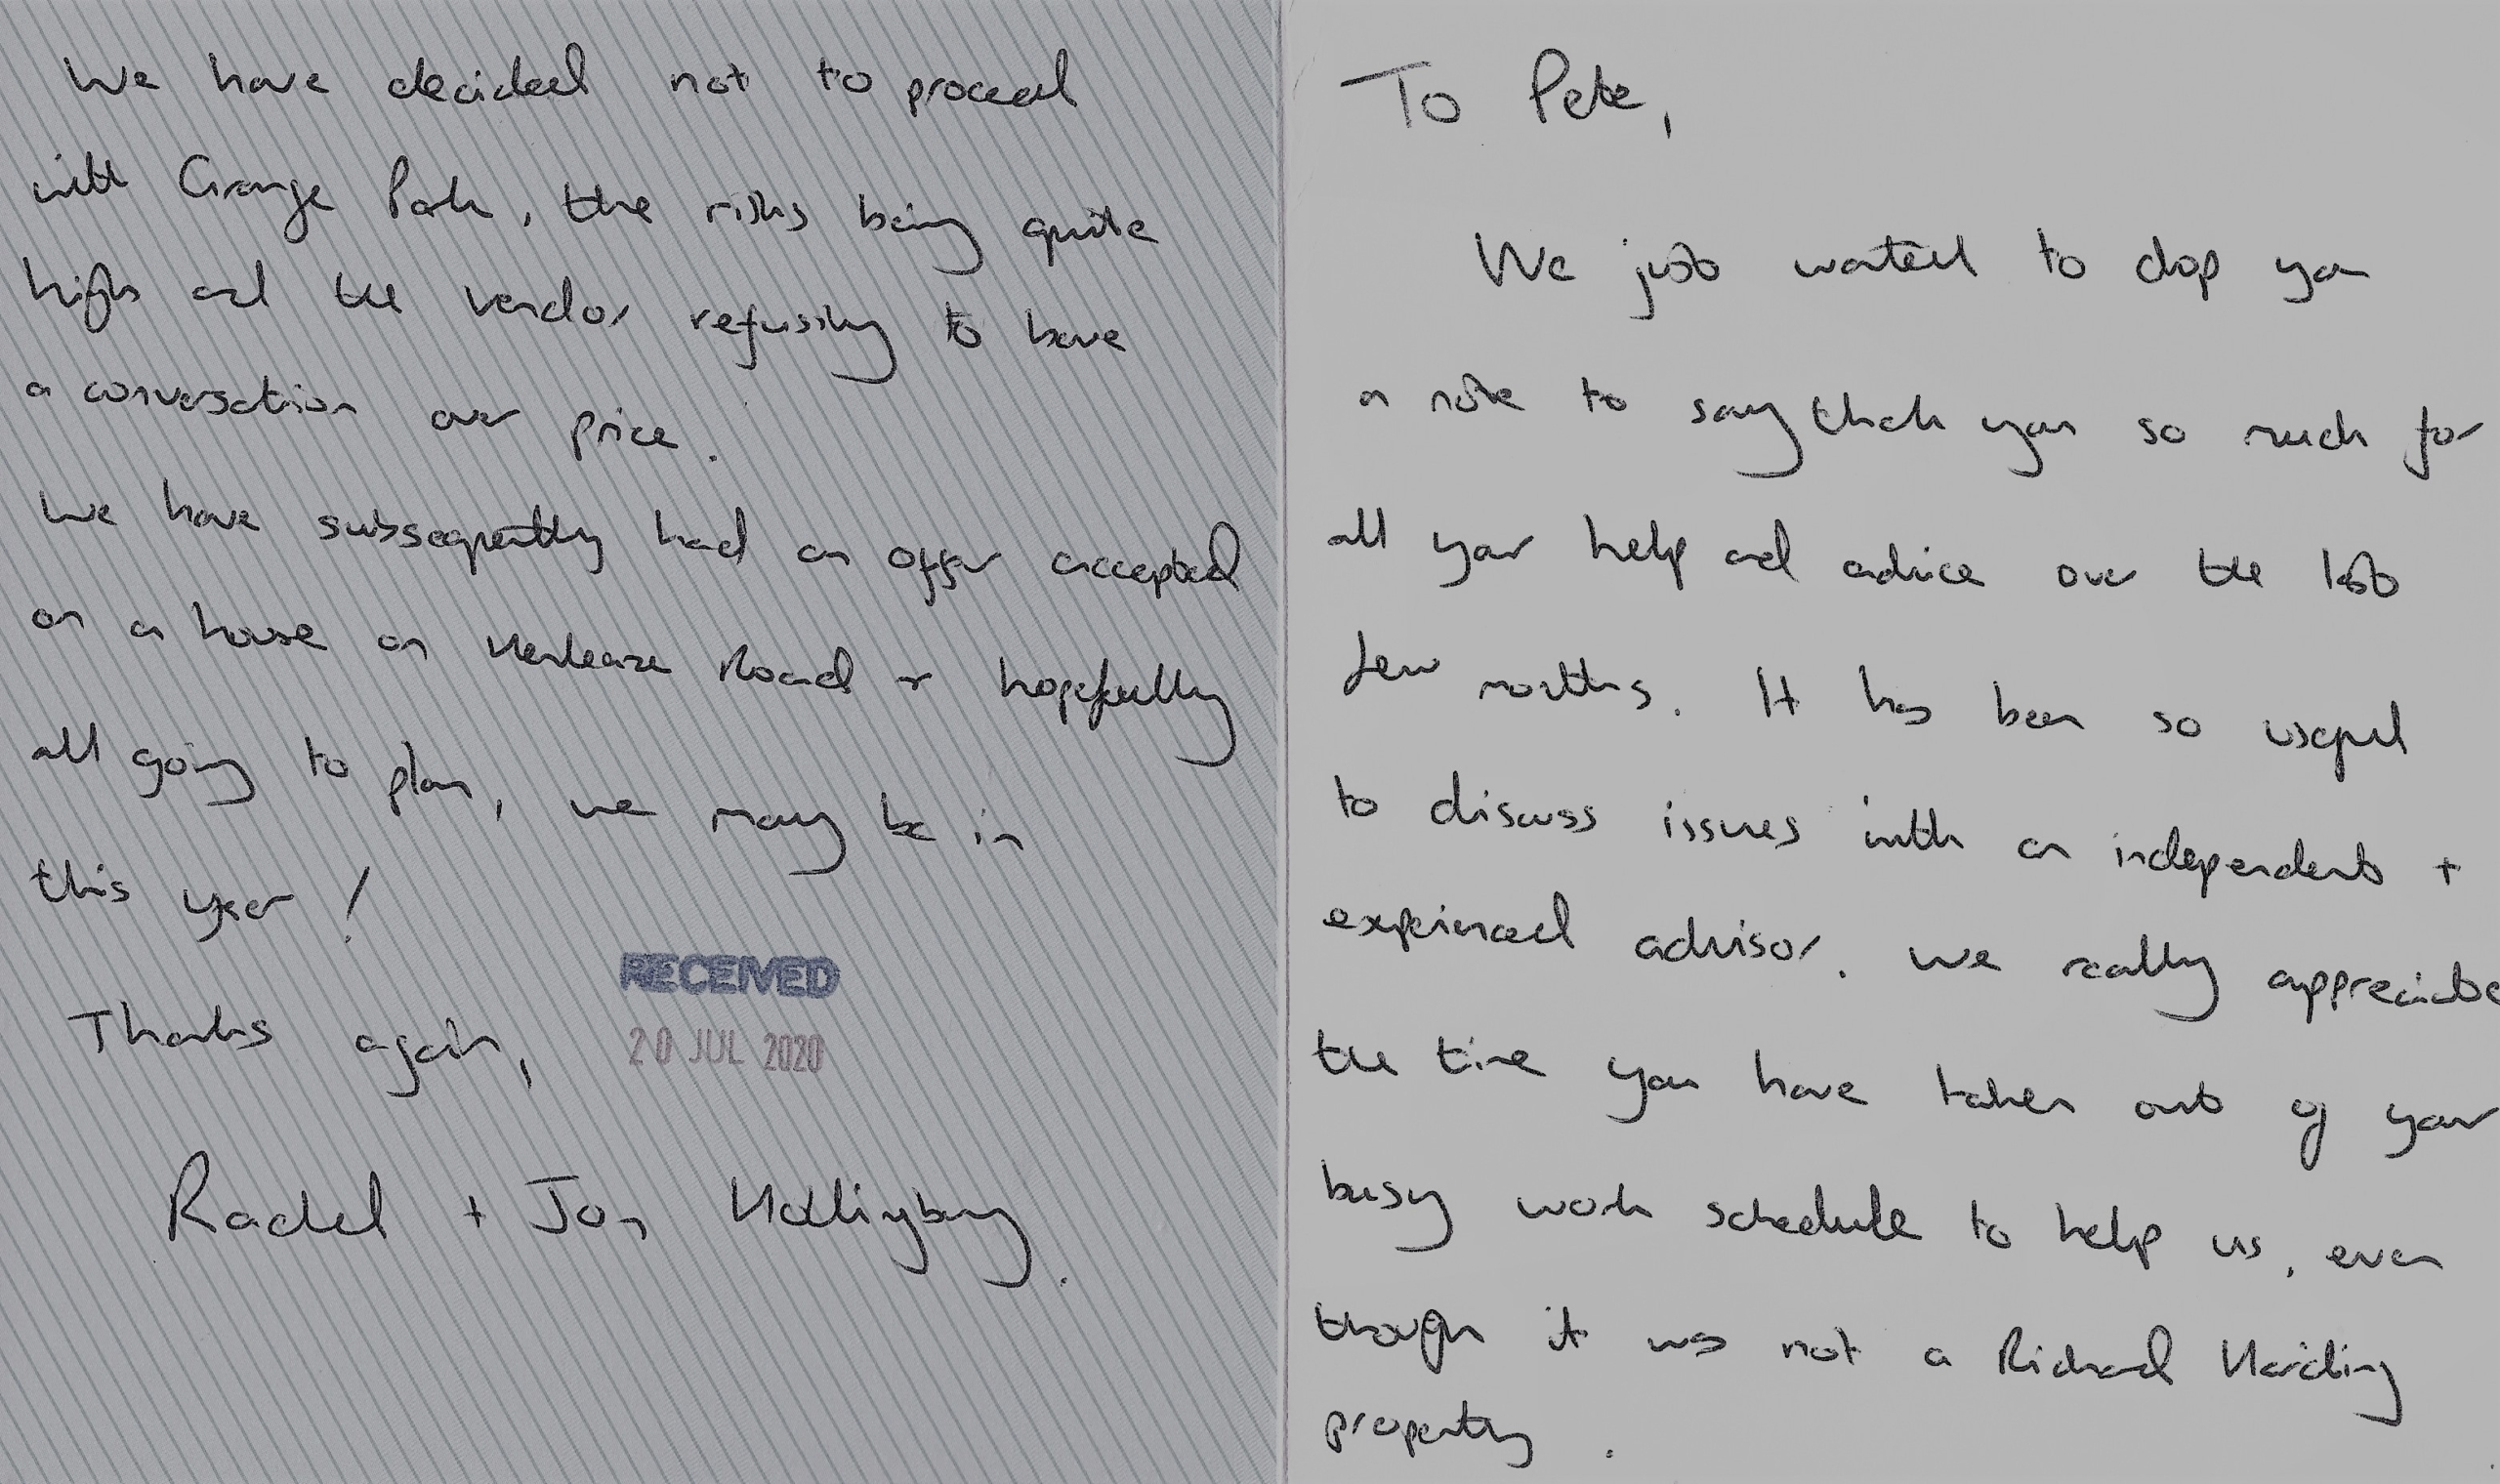 To Pete,
We just wanted to drop you
a note to say thank you so much for
all your help and advice over the last
few months. It has been so useful
to discuss issues with an independent +
experienced advisor. We really appreciate
the time you have taken out of your
busy work schedule to help us, even
though it was not a Richard Harding
property.
We have decided not to proceed
with Grange Park, the risks being quite
high and the vendor refusing to have
a conversation over price.
We have subsequently had an offer accepted
on a house on Henleaze Road + hopefully
all going to plan, we may be in
this year!
Thanks again,
RECEIVED
20 JUL 2020
Rachel + Jon Hollingbery.